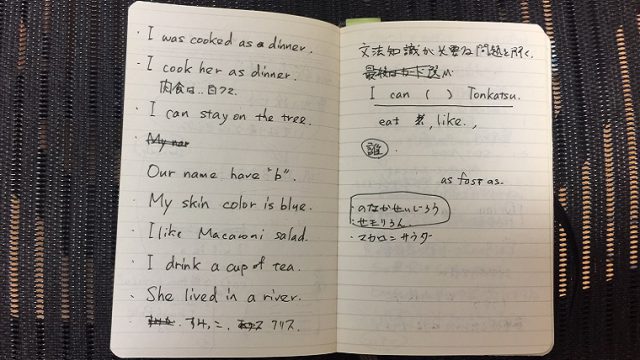 ・I was cooked as a dinner.
- I cook her as dinner.
肉食は..日フェ
・I can stay on the tree.
・
Our name have "b".
・My skin color is blue.
・I like Macaroni salad.
・I drink a cup of tea.
・She lived in a river.
・すけ,こ. クリス
文法知識が必要な問題を解く.
I can ( ) Tonkatsu.
eat , like.,
誰.
as fast as.
のなかせいじろう
・せモリろん.
・マカロニサラダ